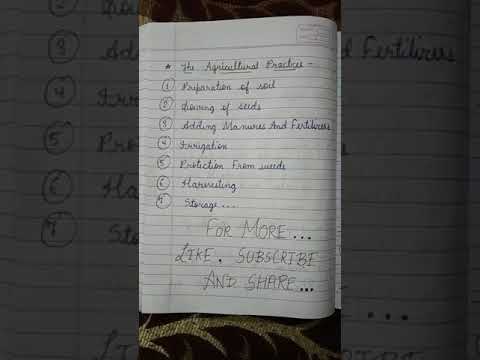 * The Agricultural Practice -
① Preparation of soil
② Sowing of seeds
③ Adding Manures And Fertilizers
④ Irrigation
⑤ Protection From weeds
⑥ Harvesting
⑦ Storage ...
FOR MORE...
LIKE. SUBSCRIBE
AND SHARE...